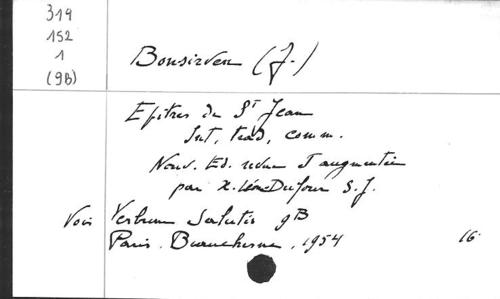 319
152
1
(9B)
Bonsirven (J.)
Epitres de St Jean
Int, trad, comm.
Nouv. Ed. revue et augmentée
par X. Léon Dufour S. J.
Voir Verbum Salutis 9B
Paris. Beauchesne, 1954 16°